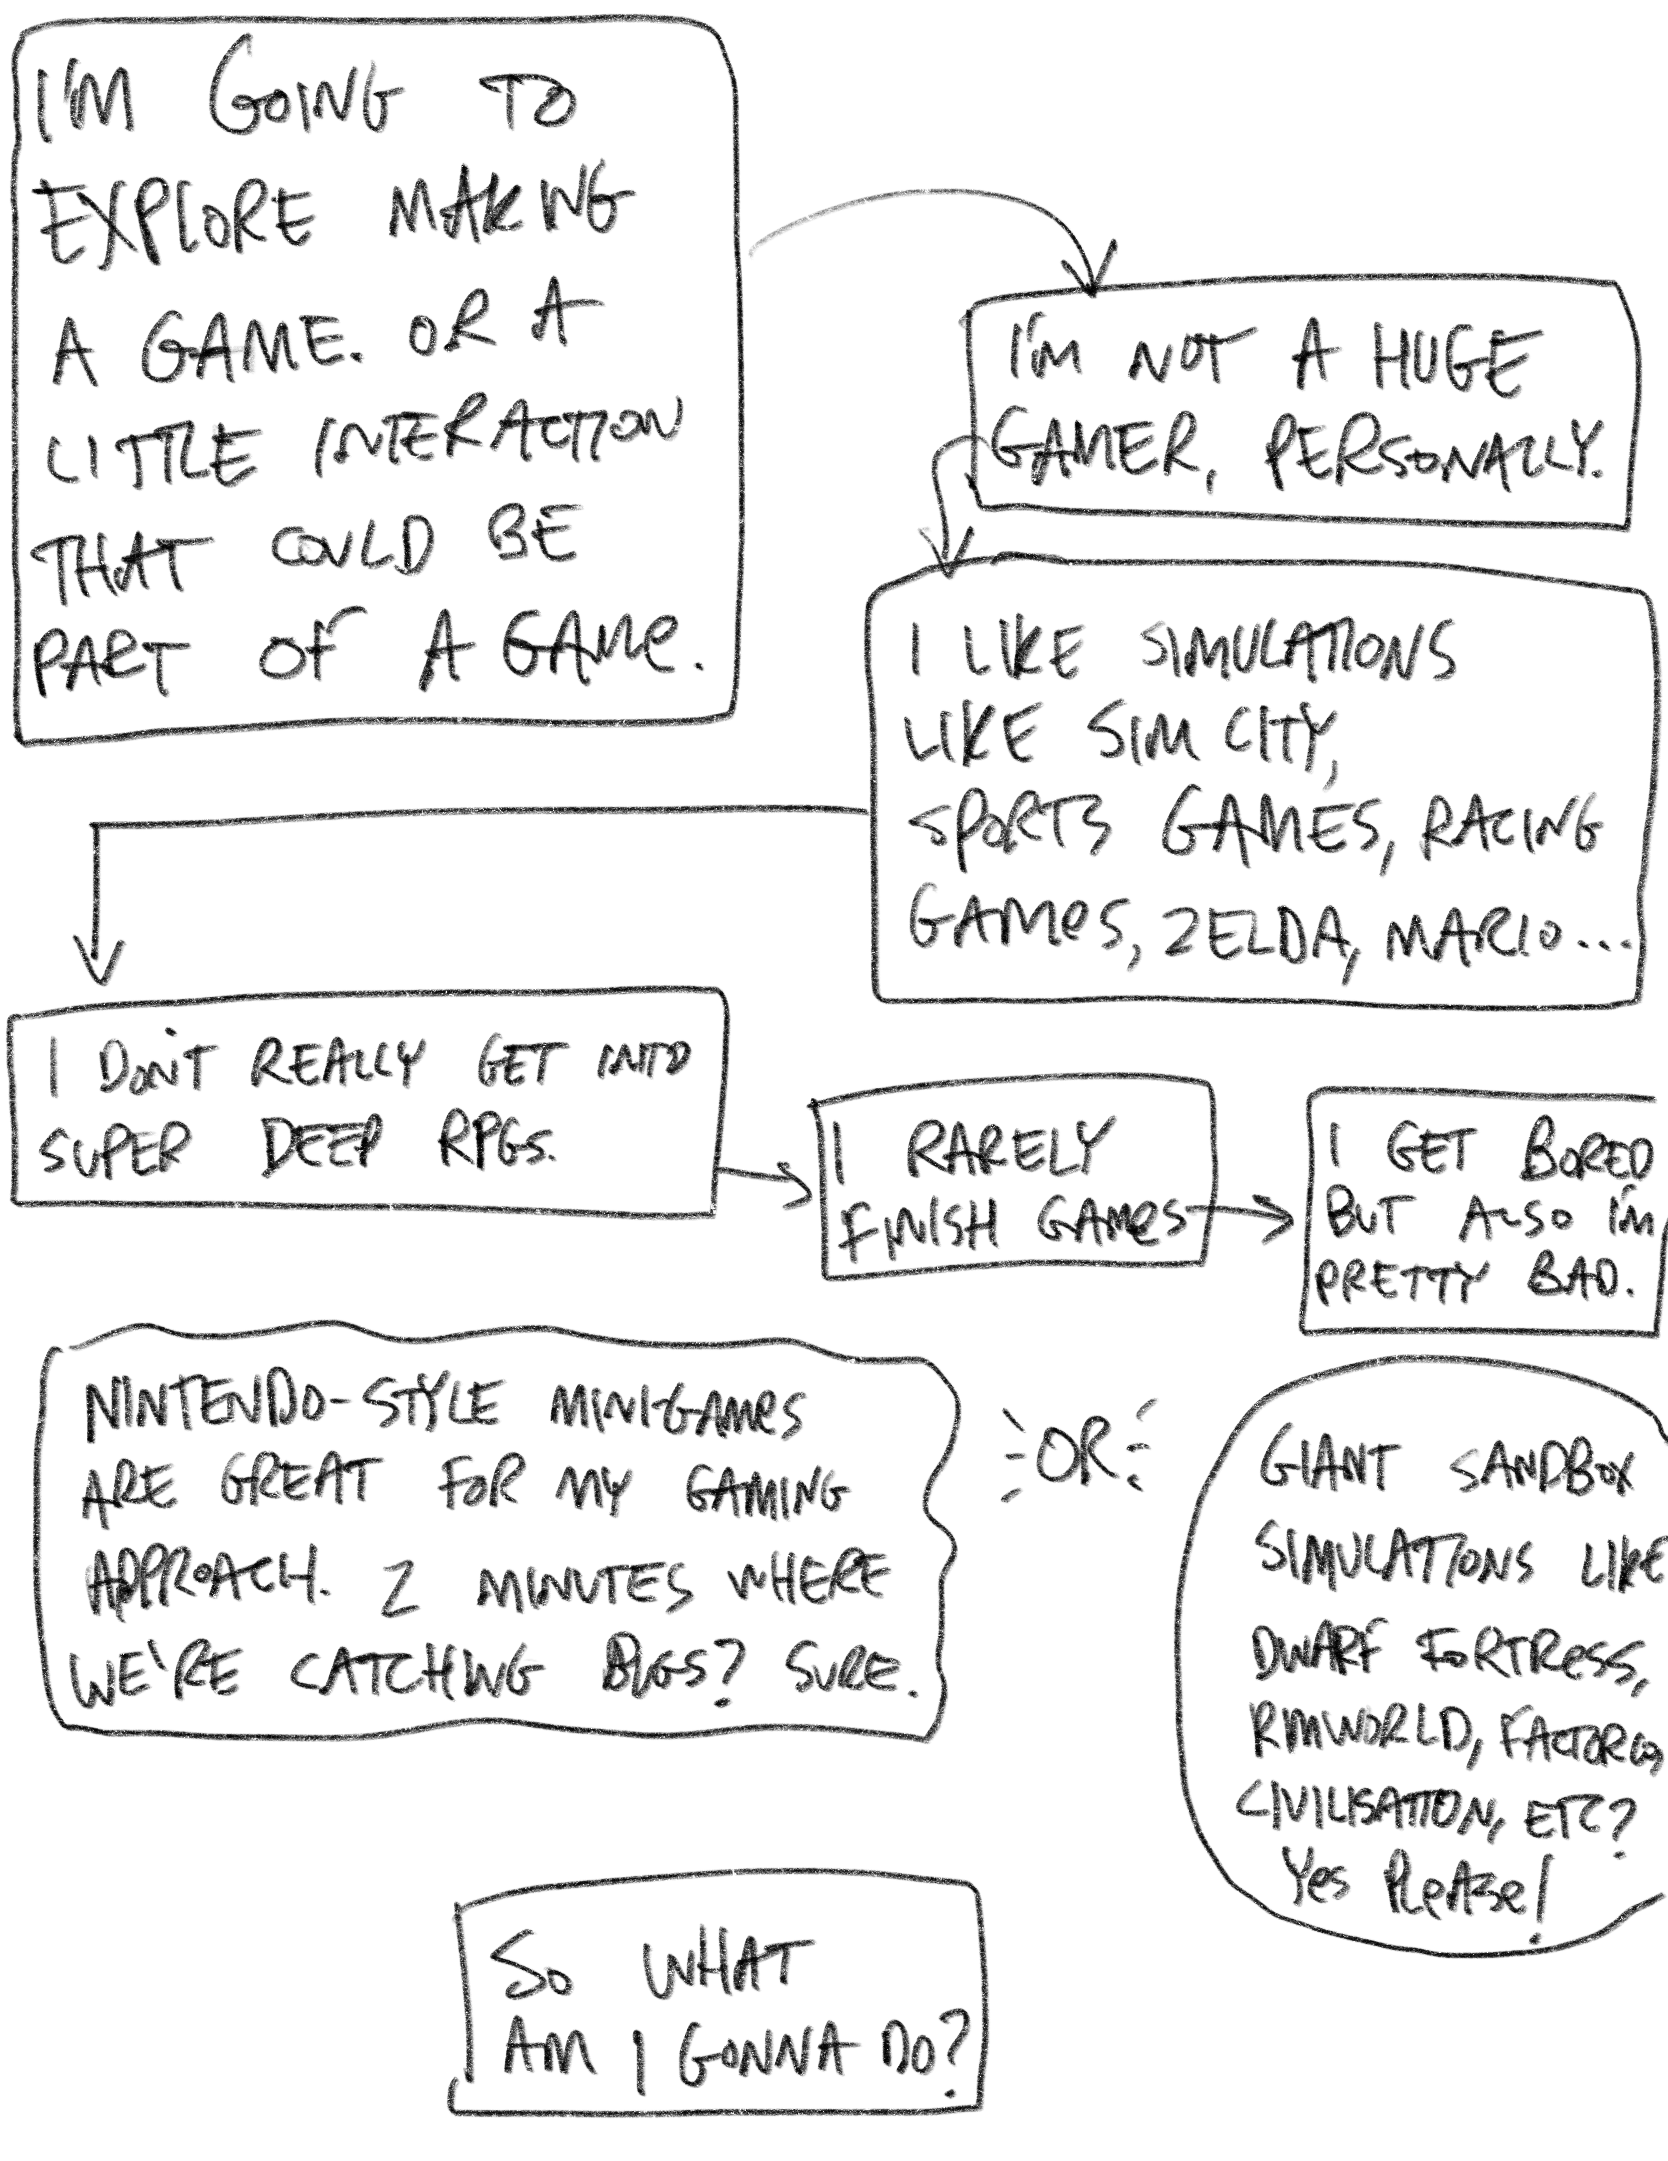 I'M GOING TO
EXPLORE MAKING
A GAME. OR A
LITTLE INTERACTION
THAT COULD BE
PART OF A GAME.
I'M NOT A HUGE
GAMER, PERSONALLY.
I LIKE SIMULATIONS
LIKE SIM CITY,
SPORTS GAMES, RACING
GAMES, ZELDA, MARIO...
I DON'T REALLY GET INTO
SUPER DEEP RPGS.
I RARELY
FINISH GAMES
I GET BORED
BUT ALSO I'M
PRETTY BAD.
NINTENDO-STYLE MINIGAMES
ARE GREAT FOR MY GAMING
APPROACH. 2 MINUTES WHERE
WE'RE CATCHING BUGS? SURE.
OR
GIANT SANDBOX
SIMULATIONS LIKE
DWARF FORTRESS,
RIMWORLD, FACTORIO,
CIVILISATION, ETC?
YES PLEASE!
SO WHAT
AM I GONNA DO?